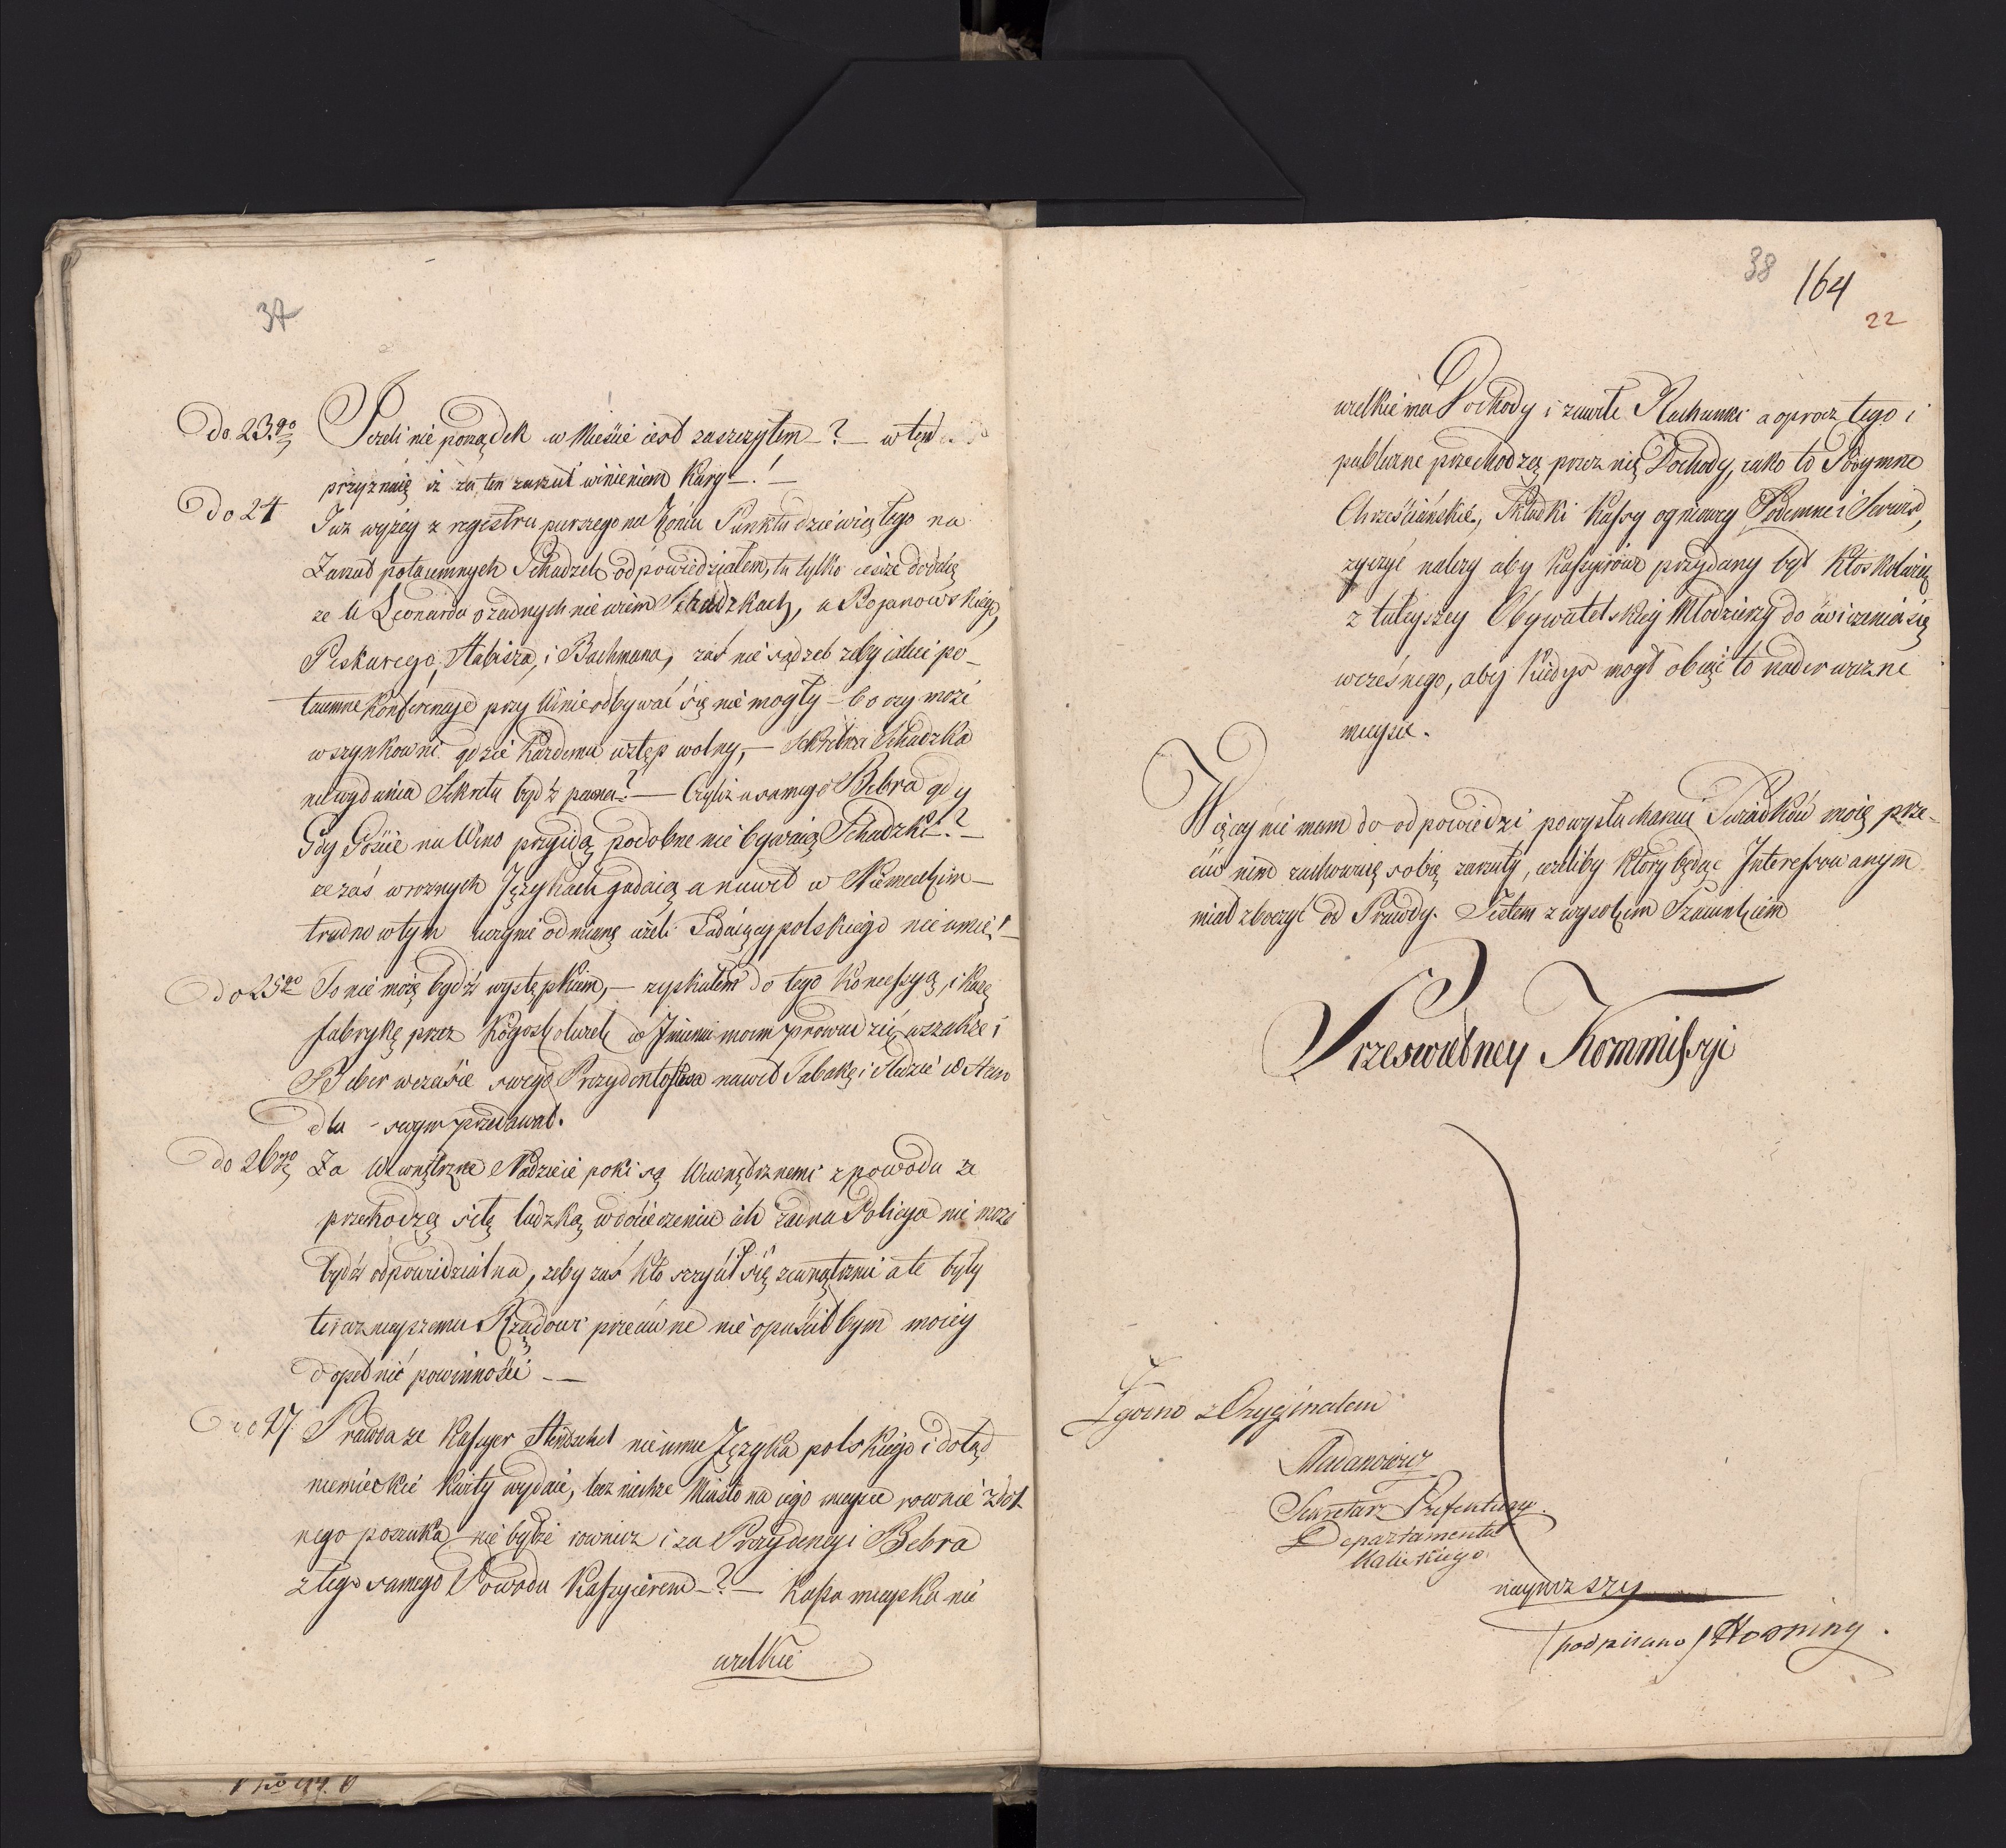 37
Do 23go Jeżeli nie porządek w Mieście iest zaszczytem ? — w ten
przyznaię iż za ten zarzut winienem Karę — ! —
Do 24 Już wyżey z registru pierszego na końcu Punktu dziewiątego na
Zarzut potaiemnych Schadzek odpowiedziałem, tu tylko ieszcze dodaię
że U Leonarda o żadnych nie wiem Schadzkach, u Bojanowskiego,
Peskarego, Stabisza, i Bachmana, zaś nie sądzeb żeby iakie po-
taiemne Konferencye przy Winie odbywać się nie mogły — bo czy może
w szynkowni gdzie każdemu wstęp wolny, — Sekretna Schadzka
niewydania Sekretu bydź pewna ? — Czyliż u samego Bebra gdy
Gdy Goście na Wino przyidą podobne nie bywaią Schadzki ? —
że zaś w rożnych Językach gadaią a nawet w Niemieckim —
trudno w tym uczynić odmianę ieżeli Gadaiący polskiego nie umie ! —
do 25go To nie może bydź występkiem, — zyskałem do tego Koncessyą, i każę
fabrykę przez Kogoskolwiek w Imieniu moim prowadzić, wszakże i
Beber w czasie swego Prezydentostwa nawet Tabakę i Śledzie w Han
dlu swym przedawał.
do 26go Za Wewnętrzne Nadzieie poki są Wewnętrznemi z powodu że
przechodzą siłę ludzką w docieczeniu ich żadna Policya nie może
bydź odpowiedzialna, żeby zaś kto szczycił się zewnętrznie ale były
teraznieyszemu Rządowi przeciwne nie opuścił bym moiey
dopełnić powinności — —
do 27 Prawda że Kassyer Hentschel nie umie Języka polskiego i dotąd
niemieckie kwity wydaie, lecz niechże Miasto na iego mieysce rownie zdol
nego poszuka, nie byłże rownież i za Prezydencyi Bebra
z tego samego Powodu Kassyierem — ? — Kassa mieyska nie
wielkie
38
164
22
wielkie ma Dochody i zawiłe Rachunki a oprocz tego i
publiczne przechodzą przez nię Dochody, iako to Podymne
Chrześciańskie, Składki Kassy ogniowey Podymne i Serwis,
życzyć należy aby Kassyierowi przydany był Ktoskolwiek
z tuteyszey Obywatelskiey Młodzieży do ćwiczenia się
wcześnego, aby kiedyś mogł obiąć to nader ważne
mieysce.
Więcey nie mam do odpowiedzi po wysłuchaniu Swiadków moię prze-
ciw nim zachowuię sobię zarzuty, ieżeliby który będąc Interessowanym
miał zboczyć od Prawdy. Jestem z wysokim Szacunkiem
Prześwietney Kommissyi
Zgodno z Oryginałem
Sekretarz Prefektury
Departamentu
Kaliskiego.
nayniższy
(podpisano) Horning.